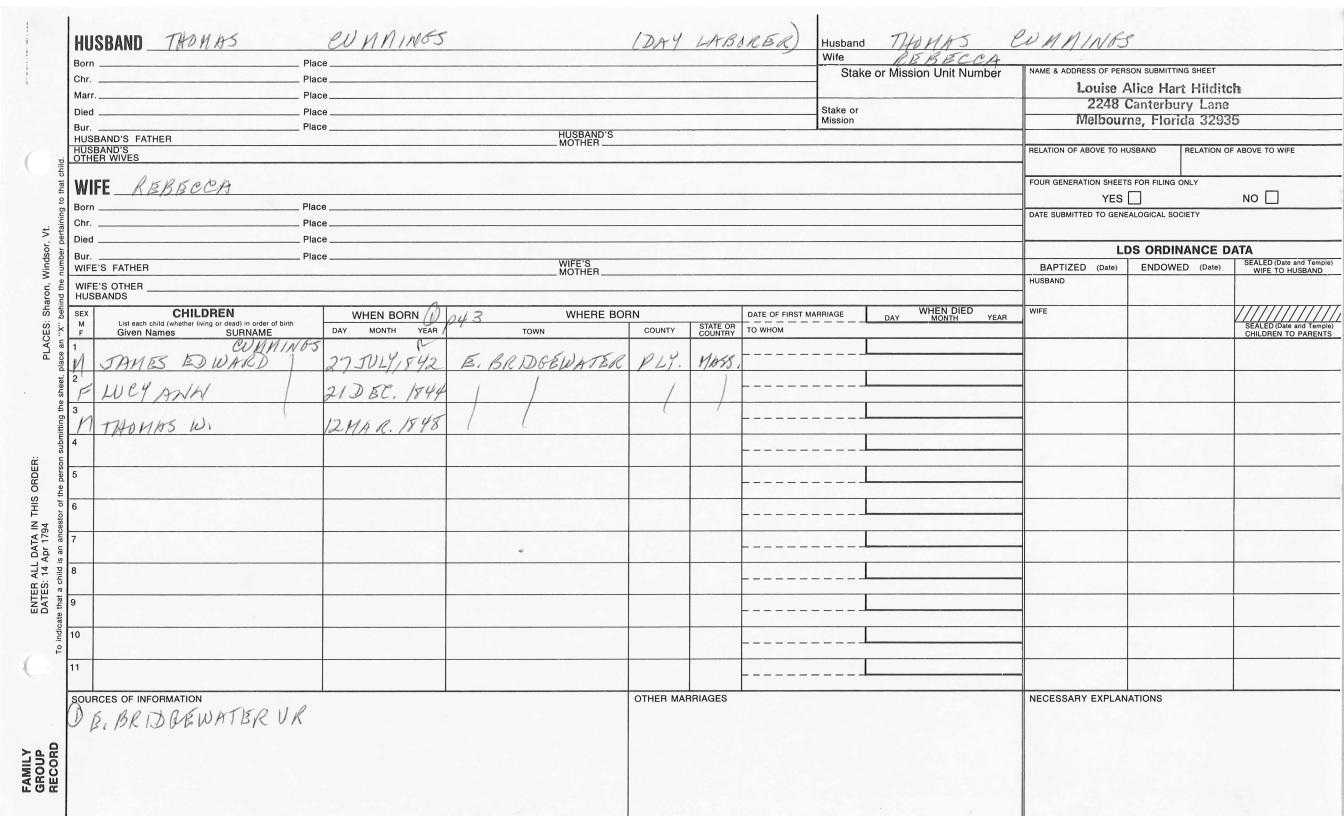 HUSBAND THOMAS CUMMINGS (DAY LABORER)
Born Place
Chr. Place
Marr. Place
Died Place
Bur. Place
HUSBAND'S FATHER HUSBAND'S MOTHER
HUSBAND'S OTHER WIVES
Husband THOMAS CUMMINGS
Wife REBECCA
Stake or Mission Unit Number
Stake or Mission
NAME & ADDRESS OF PERSON SUBMITTING SHEET
Louise Alice Hart Hilditch
2248 Canterbury Lane
Melbourne, Florida 32935
RELATION OF ABOVE TO HUSBAND RELATION OF ABOVE TO WIFE
FOUR GENERATION SHEETS FOR FILING ONLY
YES NO
DATE SUBMITTED TO GENEALOGICAL SOCIETY
WIFE REBECCA
Born Place
Chr. Place
Died Place
Bur. Place
WIFE'S FATHER WIFE'S MOTHER
WIFE'S OTHER HUSBANDS
LDS ORDINANCE DATA
BAPTIZED (Date) ENDOWED (Date) SEALED (Date and Temple) WIFE TO HUSBAND
HUSBAND
WIFE
SEALED (Date and Temple) CHILDREN TO PARENTS
SEX M F
CHILDREN
List each child (whether living or dead) in order of birth
Given Names SURNAME
WHEN BORN ① p43 WHERE BORN
DAY MONTH YEAR TOWN COUNTY STATE OR COUNTRY
DATE OF FIRST MARRIAGE
TO WHOM
WHEN DIED
DAY MONTH YEAR
CUMMINGS
1 M JAMES EDWARD 27 JULY, 1842 E. BRIDGEWATER PLY. MASS.
2 F LUCY ANN 21 DEC. 1844
3 M THOMAS W. 12 MAR. 1848
4
5
6
7
8
9
10
11
SOURCES OF INFORMATION
① E. BRIDGEWATER VR
OTHER MARRIAGES
NECESSARY EXPLANATIONS
PLACES: Sharon, Windsor, Vt.
ENTER ALL DATA IN THIS ORDER:
DATES: 14 Apr 1794
To indicate that a child is an ancestor of the person submitting the sheet, place an "X" behind the number pertaining to that child.
FAMILY
GROUP
RECORD